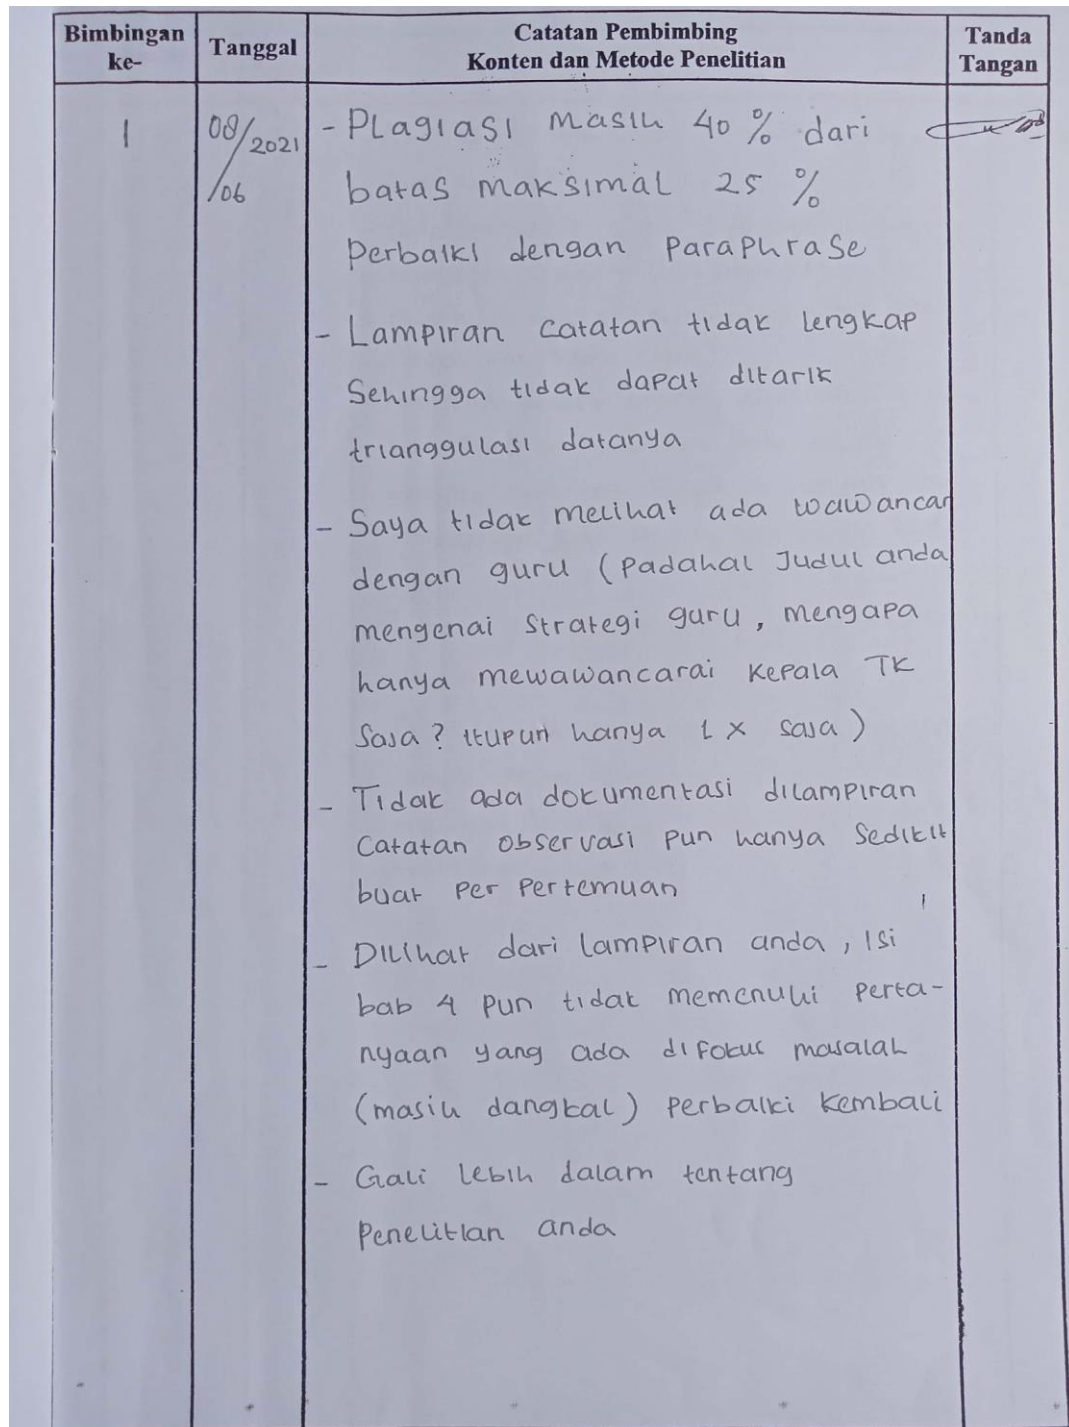 Bimbingan ke-
Tanggal
Catatan Pembimbing
Konten dan Metode Penelitian
Tanda Tangan
1
08/2021
/06
- Plagiasi masih 40 % dari
batas maksimal 25 %
Perbaiki dengan Paraphrase
- Lampiran catatan tidak lengkap
Sehingga tidak dapat ditarik
trianggulasi datanya
- Saya tidak melihat ada wawancar
dengan guru (Padahal Judul anda
mengenai Strategi guru, mengapa
hanya mewawancarai Kepala TK
Saja? itupun hanya 1 x saja)
- Tidak ada dokumentasi dilampiran
Catatan observasi pun hanya Sedikit
buat Per Pertemuan
- Dilihat dari lampiran anda, isi
bab 4 pun tidak memenuhi perta-
nyaan yang ada difokus masalah
(masih dangkal) Perbaiki Kembali
- Gali lebih dalam tentang
Penelitian anda